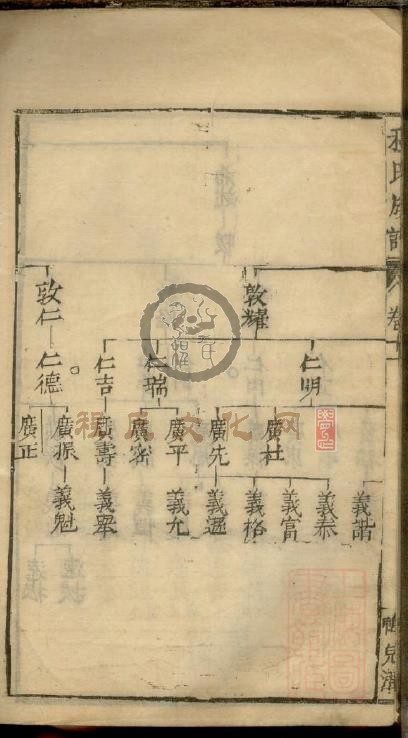 氏族譜
卷十
敦耀
敦仁
仁明
仁瑞
仁吉
仁德
廣杜
廣先
廣平
廣密
廣壽
廣振
廣正
義諧
義泰
義富
義格
義遇
義允
義舉
義魁
程氏文化网